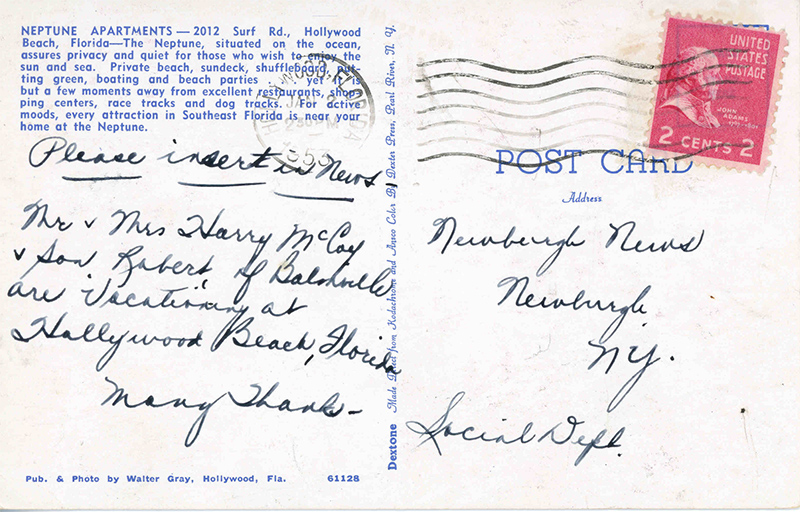 NEPTUNE APARTMENTS — 2012 Surf Rd., Hollywood
Beach, Florida—The Neptune, situated on the ocean,
assures privacy and quiet for those who wish to enjoy the
sun and sea. Private beach, sundeck, shuffleboard, put-
ting green, boating and beach parties - yet it is
but a few moments away from excellent restaurants, shop-
ping centers, race tracks and dog tracks. For active
moods, every attraction in Southeast Florida is near your
home at the Neptune.
Please insert in News
Mr & Mrs Harry McCoy
& Son Robert, of Balmville
are Vacationing at
Hollywood Beach, Florida
Many Thanks-
Pub. & Photo by Walter Gray, Hollywood, Fla. 61128
Dextone Made Direct from Kodachrome and Ansco Color By Dexter Press, Pearl River, N. Y.
HOLLYWOOD, FLORIDA
JAN
2 30 PM
1955
UNITED
STATES
POSTAGE
JOHN
ADAMS
1797-1801
2 CENTS 2
POST CARD
Address
Newburgh News
Newburgh
NY.
Social Dept.